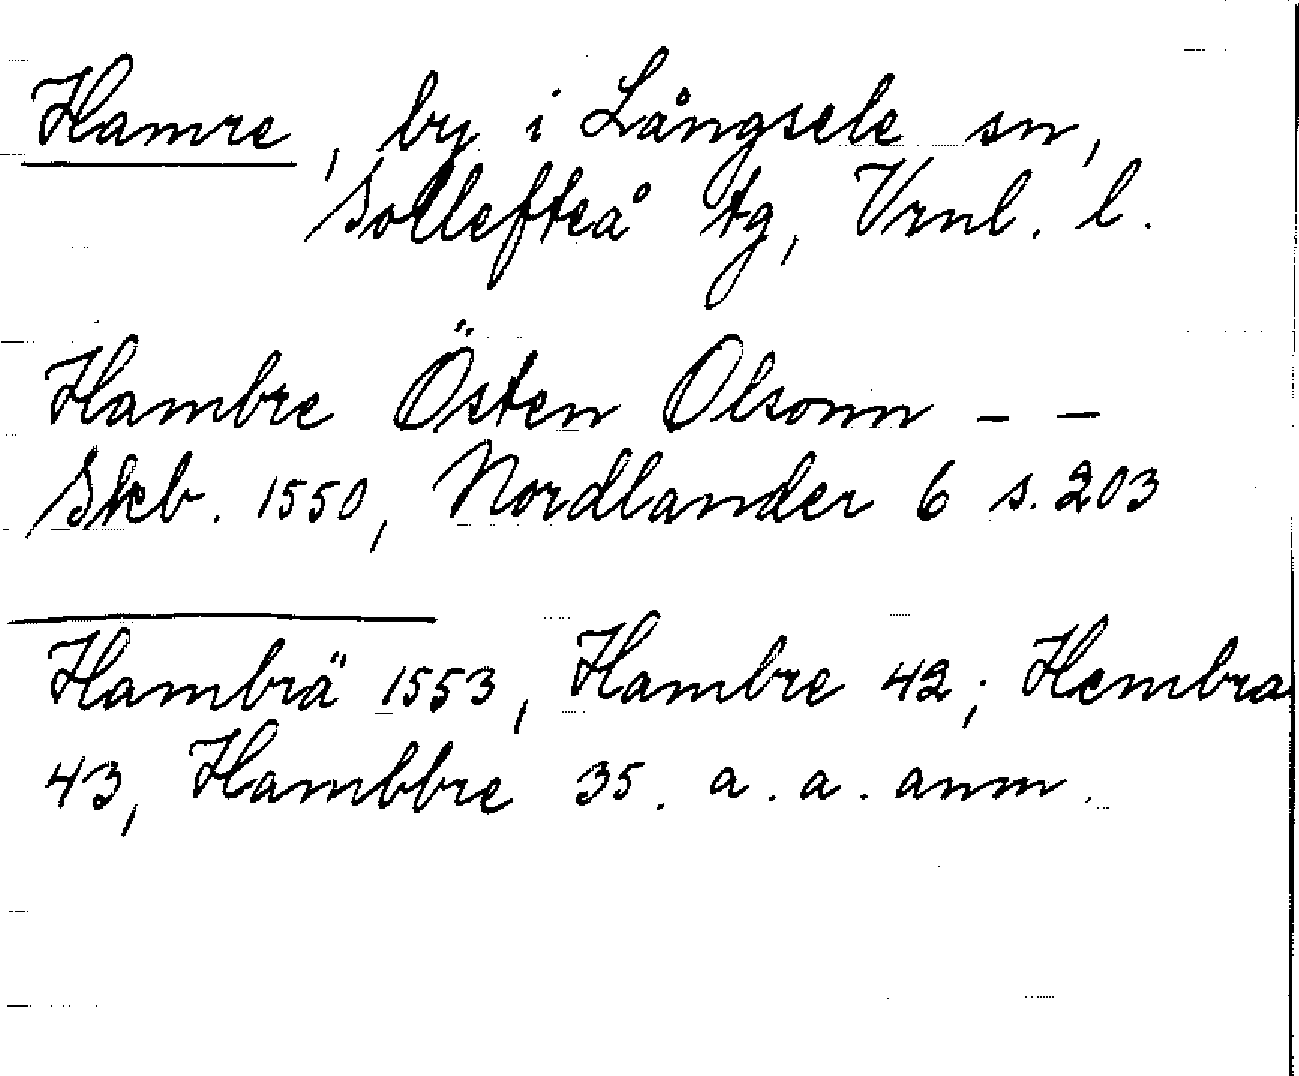 Hamre, by i Långsele sn,
Sollefteå tg, Vrnl. l.
Hambre Östen Olsonn – –
Skb. 1550, Nordlander 6 s. 203
Hambrä 1553, Hambre 42; Hembra
43, Hambbre 35. a. a. anm.